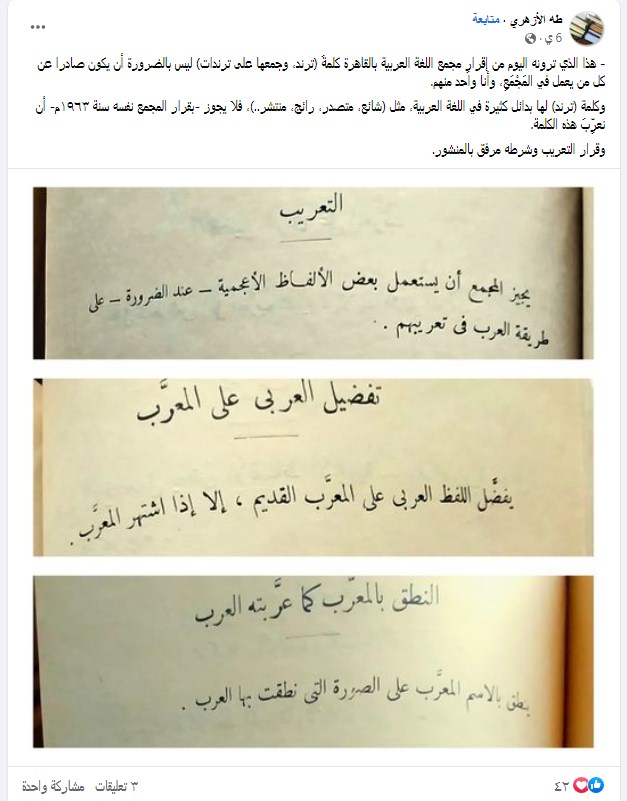 طه الأزهري · متابعة
6 ي ·
- هذا الذي ترونه اليوم من إقرار مجمع اللغة العربية بالقاهرة كلمةَ (ترند، وجمعها على ترندات) ليس بالضرورة أن يكون صادرا عن
كل من يعمل في المَجْمَع، وأنا واحد منهم.
وكلمة (ترند) لها بدائل كثيرة في اللغة العربية، مثل (شائع، متصدر، رائج، منتشر..)، فلا يجوز -بقرار المجمع نفسه سنة ١٩٦٣م- أن
نعرّبَ هذه الكلمة.
وقرار التعريب وشرطه مرفق بالمنشور.
التعريب
يجيز المجمع أن يستعمل بعض الألفاظ الأعجمية – عند الضرورة – على
طريقة العرب فى تعريبهم .
تفضيل العربى على المعرَّب
يفضَّل اللفظ العربى على المعرَّب القديم ، إلا إذا اشتهر المعرَّب .
النطق بالمعرّب كما عرَّبته العرب
ينطق بالاسم المعرَّب على الصورة التى نطقت بها العرب .
٤٢
٣ تعليقات مشاركة واحدة